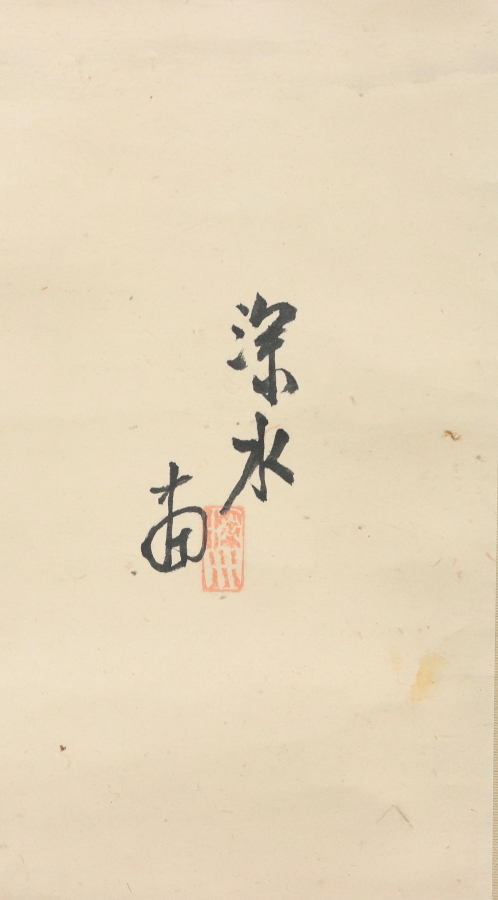 深水
画